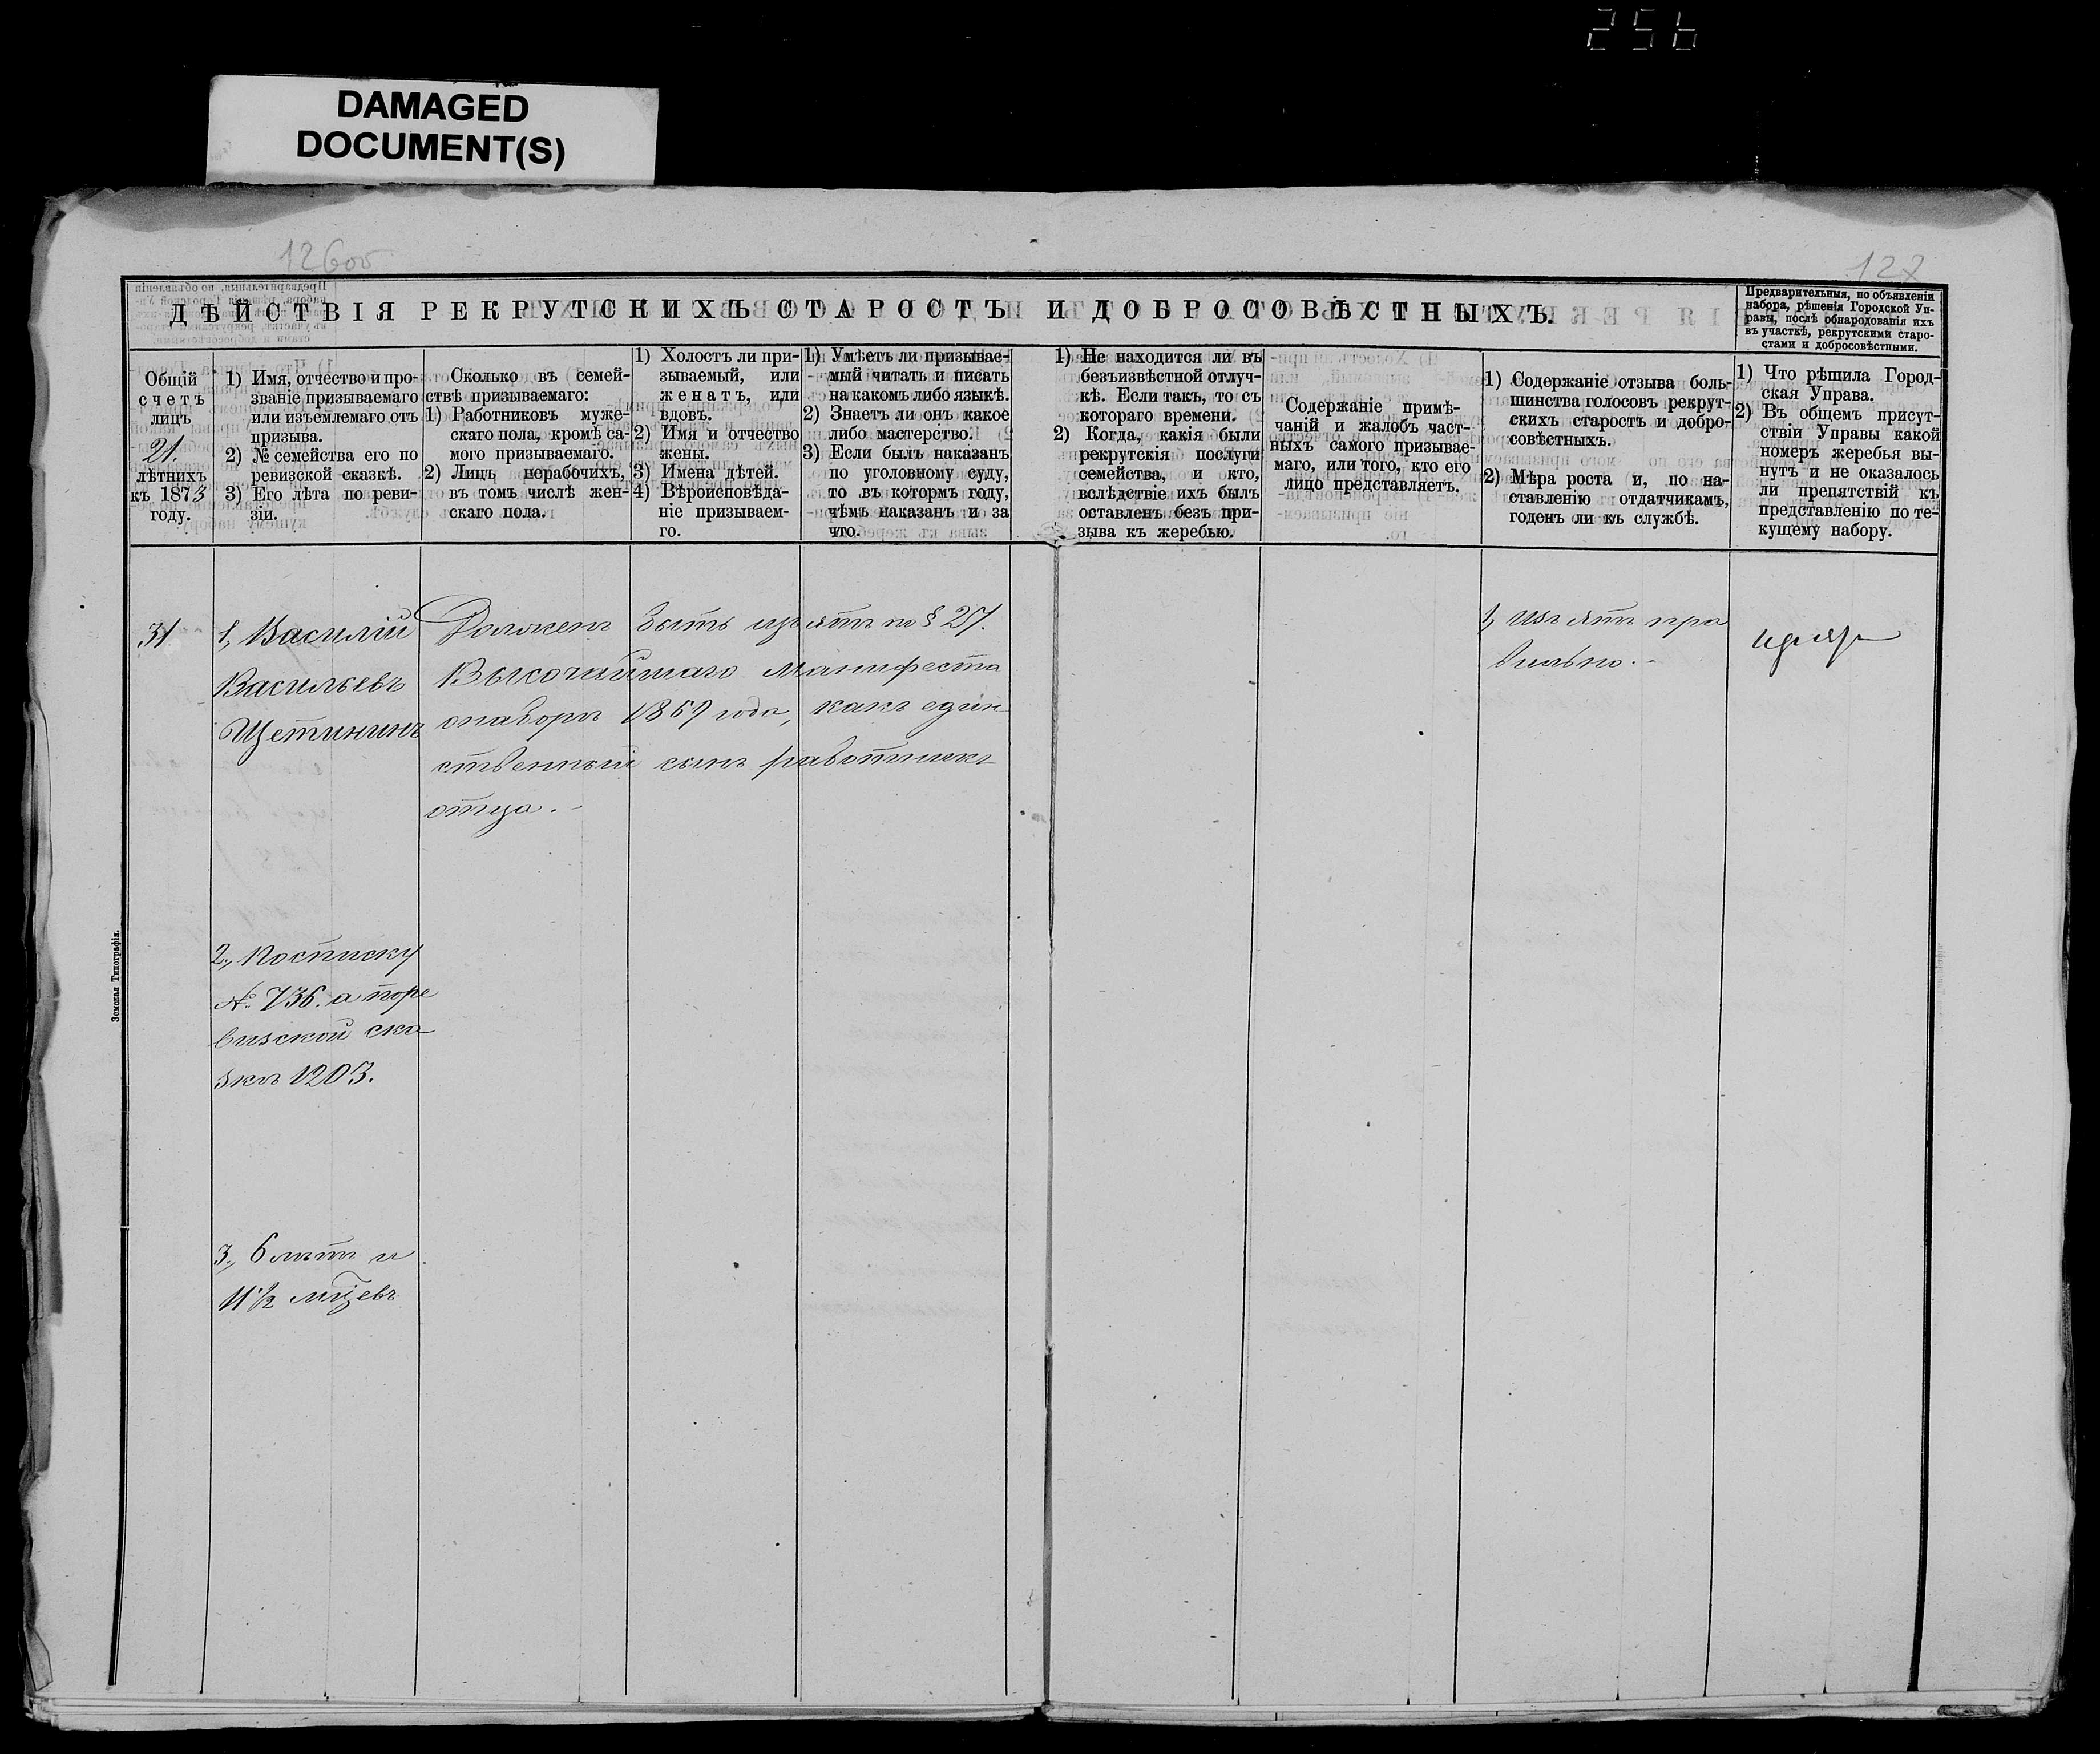 256
DAMAGED
DOCUMENT(S)
126об
127
ДѢЙСТВІЯ РЕКРУТСКИХЪ СТАРОСТЪ И ДОБРОСОВѢСТНЫХЪ.
Предварительныя, по объявленіи
набора, рѣшенія Городской Уп-
равы, послѣ обнародованія ихъ
въ участкѣ, рекрутскими старо-
стами и добросовѣстными.
Общій
счетъ
лицъ
21.
лѣтнихъ
къ 1873
году.
1) Имя, отчество и про-
званіе призываемаго
или изъемлемаго отъ
призыва.
2) № семейства его по
ревизской сказкѣ.
3) Его лѣта по реви-
зіи.
Сколько въ семей-
ствѣ призываемаго:
1) Работниковъ муже-
скаго пола, кромѣ са-
мого призываемаго.
2) Лицъ нерабочихъ,
въ томъ числѣ жен-
скаго пола.
1) Холостъ ли при-
зываемый, или
женатъ, или
вдовъ.
2) Имя и отчество
жены.
3) Имена дѣтей.
4) Вѣроисповѣда-
ніе призываем-
го.
1) Умѣетъ ли призывае-
мый читать и писать
на какомъ либо языкѣ.
2) Знаетъ ли онъ какое
либо мастерство.
3) Если былъ наказанъ
по уголовному суду,
то въ которм году,
чѣмъ наказанъ и за
что.
1) Не находится ли въ
безъизвѣстной отлуч-
кѣ. Если такъ, то съ
котораго времени.
2) Когда, какія были
рекрутскія послуги
семейства, и кто,
вслѣдствіе ихъ былъ
оставленъ безъ при-
зыва къ жеребью.
Содержаніе примѣ-
чаній и жалобъ част-
ныхъ самого призывае-
маго, или того, кто его
лицо представляетъ.
1) Содержаніе отзыва боль-
шинства голосовъ рекрут-
скихъ старостъ и добро-
совѣстныхъ.
2) Мѣра роста и, по на-
ставленію отдатчикамъ,
годенъ ли къ службѣ.
1) Что рѣшила Город-
ская Управа.
2) Въ общемъ присут-
ствіи Управы какой
номеръ жеребья вы-
нутъ и не оказалось
ли препятствій къ
представленію по те-
кущему набору.
31
1, Василій
Васильевъ
Щетининъ
Долженъ быть изъятъ по § 27.
Высочайшаго Манифеста
о наборѣ 1869 года, какъ един-
ственный сынъ работникъ
отца.
1, Изъятъ пра
вильно.
2, По списку
№ 736. а по ре
визской ска-
зкѣ 1203.
3, 6 лѣтъ и
11½ мѣсцевъ
Земская Типографія.